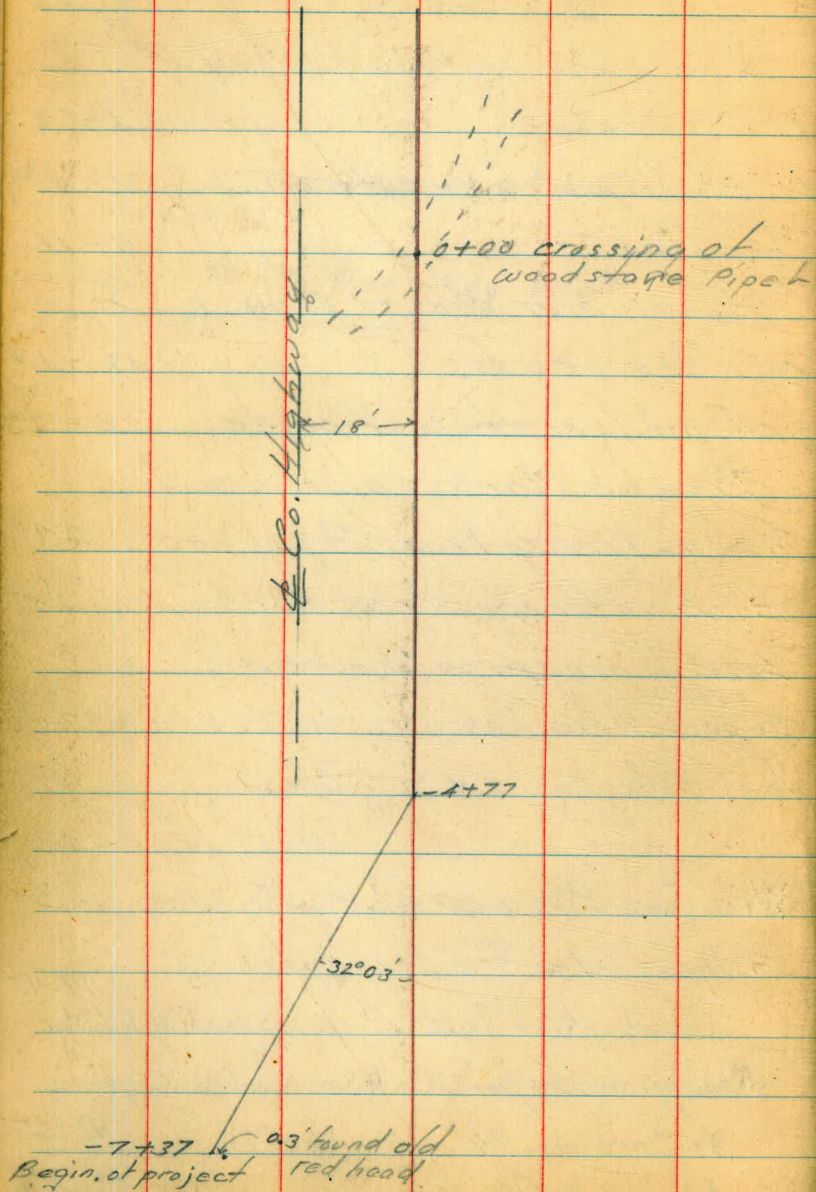 0+00 crossing of
woodstave Pipe L
℄ Co. Highway
18'
-4+77
32°03'
-7+37
0.3' found old
Begin. of project
red head